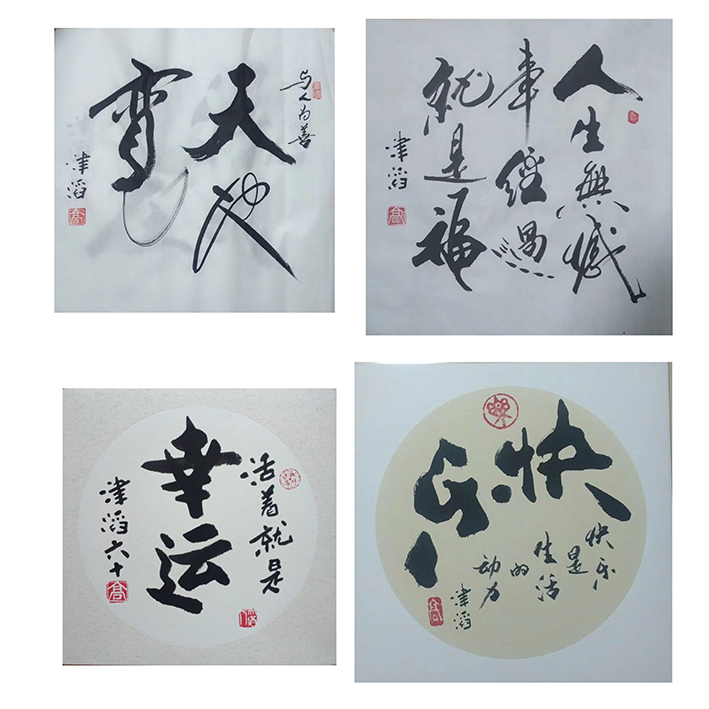 与人为善
天地
宽
津滔
高
人生無憾
事經過
就是福
津滔
高
活着就是
幸运
津滔六十
高
快乐
快乐
是
生活
的
动力
津滔